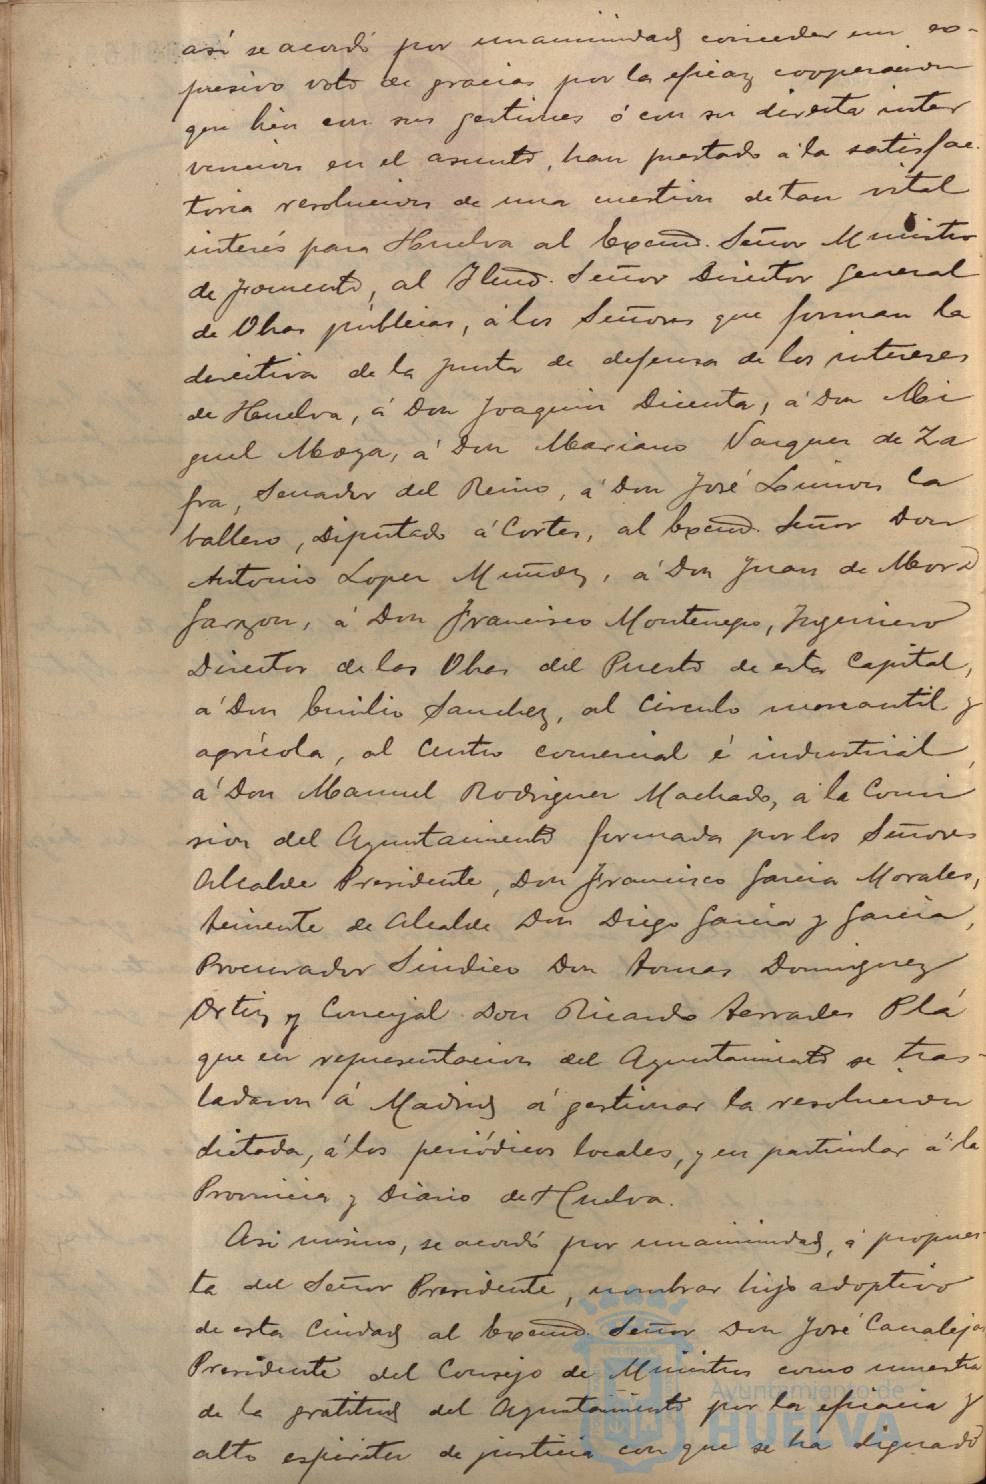 así se acordó por unanimidad conceder un ex-
presivo voto de gracias por la eficaz cooperacion
que bien con sus gestiones ó con su directa inter
vencion en el asunto, han prestado á la satisfac-
toria resolucion de una cuestion de tan vital
interés para Huelva al Excmo. Señor Ministro
de Fomento, al Ilmo. Señor Director General
de Obras públicas, á los Señores que forman la
directiva de la junta de defensa de los intereses
de Huelva, á Don Joaquin Dicenta, á Don Mi
guel Moya, á Don Mariano Vazquez de Za
fra, Senador del Reino, á Don José Limon Ca
ballero, Diputado á Cortes, al Excmo. Señor Don
Antonio Lopez Muñoz, á Don Juan de Mora
Garzon, á Don Francisco Montenegro, Ingeniero
Director de las Obras del Puerto de esta Capital,
á Don Emilio Sanchez, al Circulo mercantil y
agrícola, al Centro comercial é industrial,
á Don Manuel Rodriguez Machado, á la Comi
sion del Ayuntamiento formada por los Señores
Alcalde Presidente, Don Francisco Garcia Morales,
teniente de Alcalde Don Diego Garcia y Garcia,
Procurador Sindico Don Tomas Dominguez
Ortiz y Concejal Don Ricardo Terrades Plá
que en representacion del Ayuntamiento se tras-
ladaron á Madrid á gestionar la resolucion
dictada, á los periódicos locales, y en particular á la
Provincia y Diario de Huelva.
Asi mismo, se acordó por unanimidad, á propues-
ta del Señor Presidente, nombrar hijo adoptivo
de esta Ciudad al Excmo. Señor Don José Canalejas
Presidente del Consejo de Ministros como muestra
de la gratitud del Ayuntamiento por la eficacia y
alto espíritu de justicia con que se ha dignado
Ayuntamiento de
HUELVA